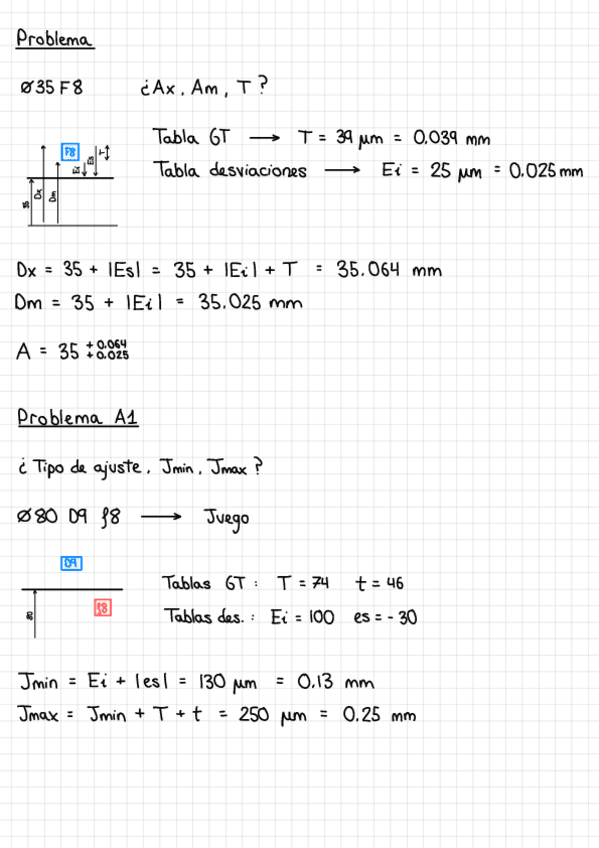 Problema
Ø35 F8 ¿Ax, Am, T?
F8
Ei
Es
T
35
Dx
Dm
Tabla GT → T = 39 μm = 0.039 mm
Tabla desviaciones → Ei = 25 μm = 0.025 mm
Dx = 35 + |Es| = 35 + |Ei| + T = 35.064 mm
Dm = 35 + |Ei| = 35.025 mm
A = 35 +0.064 +0.025
Problema A1
¿Tipo de ajuste, Jmin, Jmax?
Ø80 D9 f8 → Juego
D9
f8
80
Tablas GT: T = 74 t = 46
Tablas des.: Ei = 100 es = -30
Jmin = Ei + |es| = 130 μm = 0.13 mm
Jmax = Jmin + T + t = 250 μm = 0.25 mm